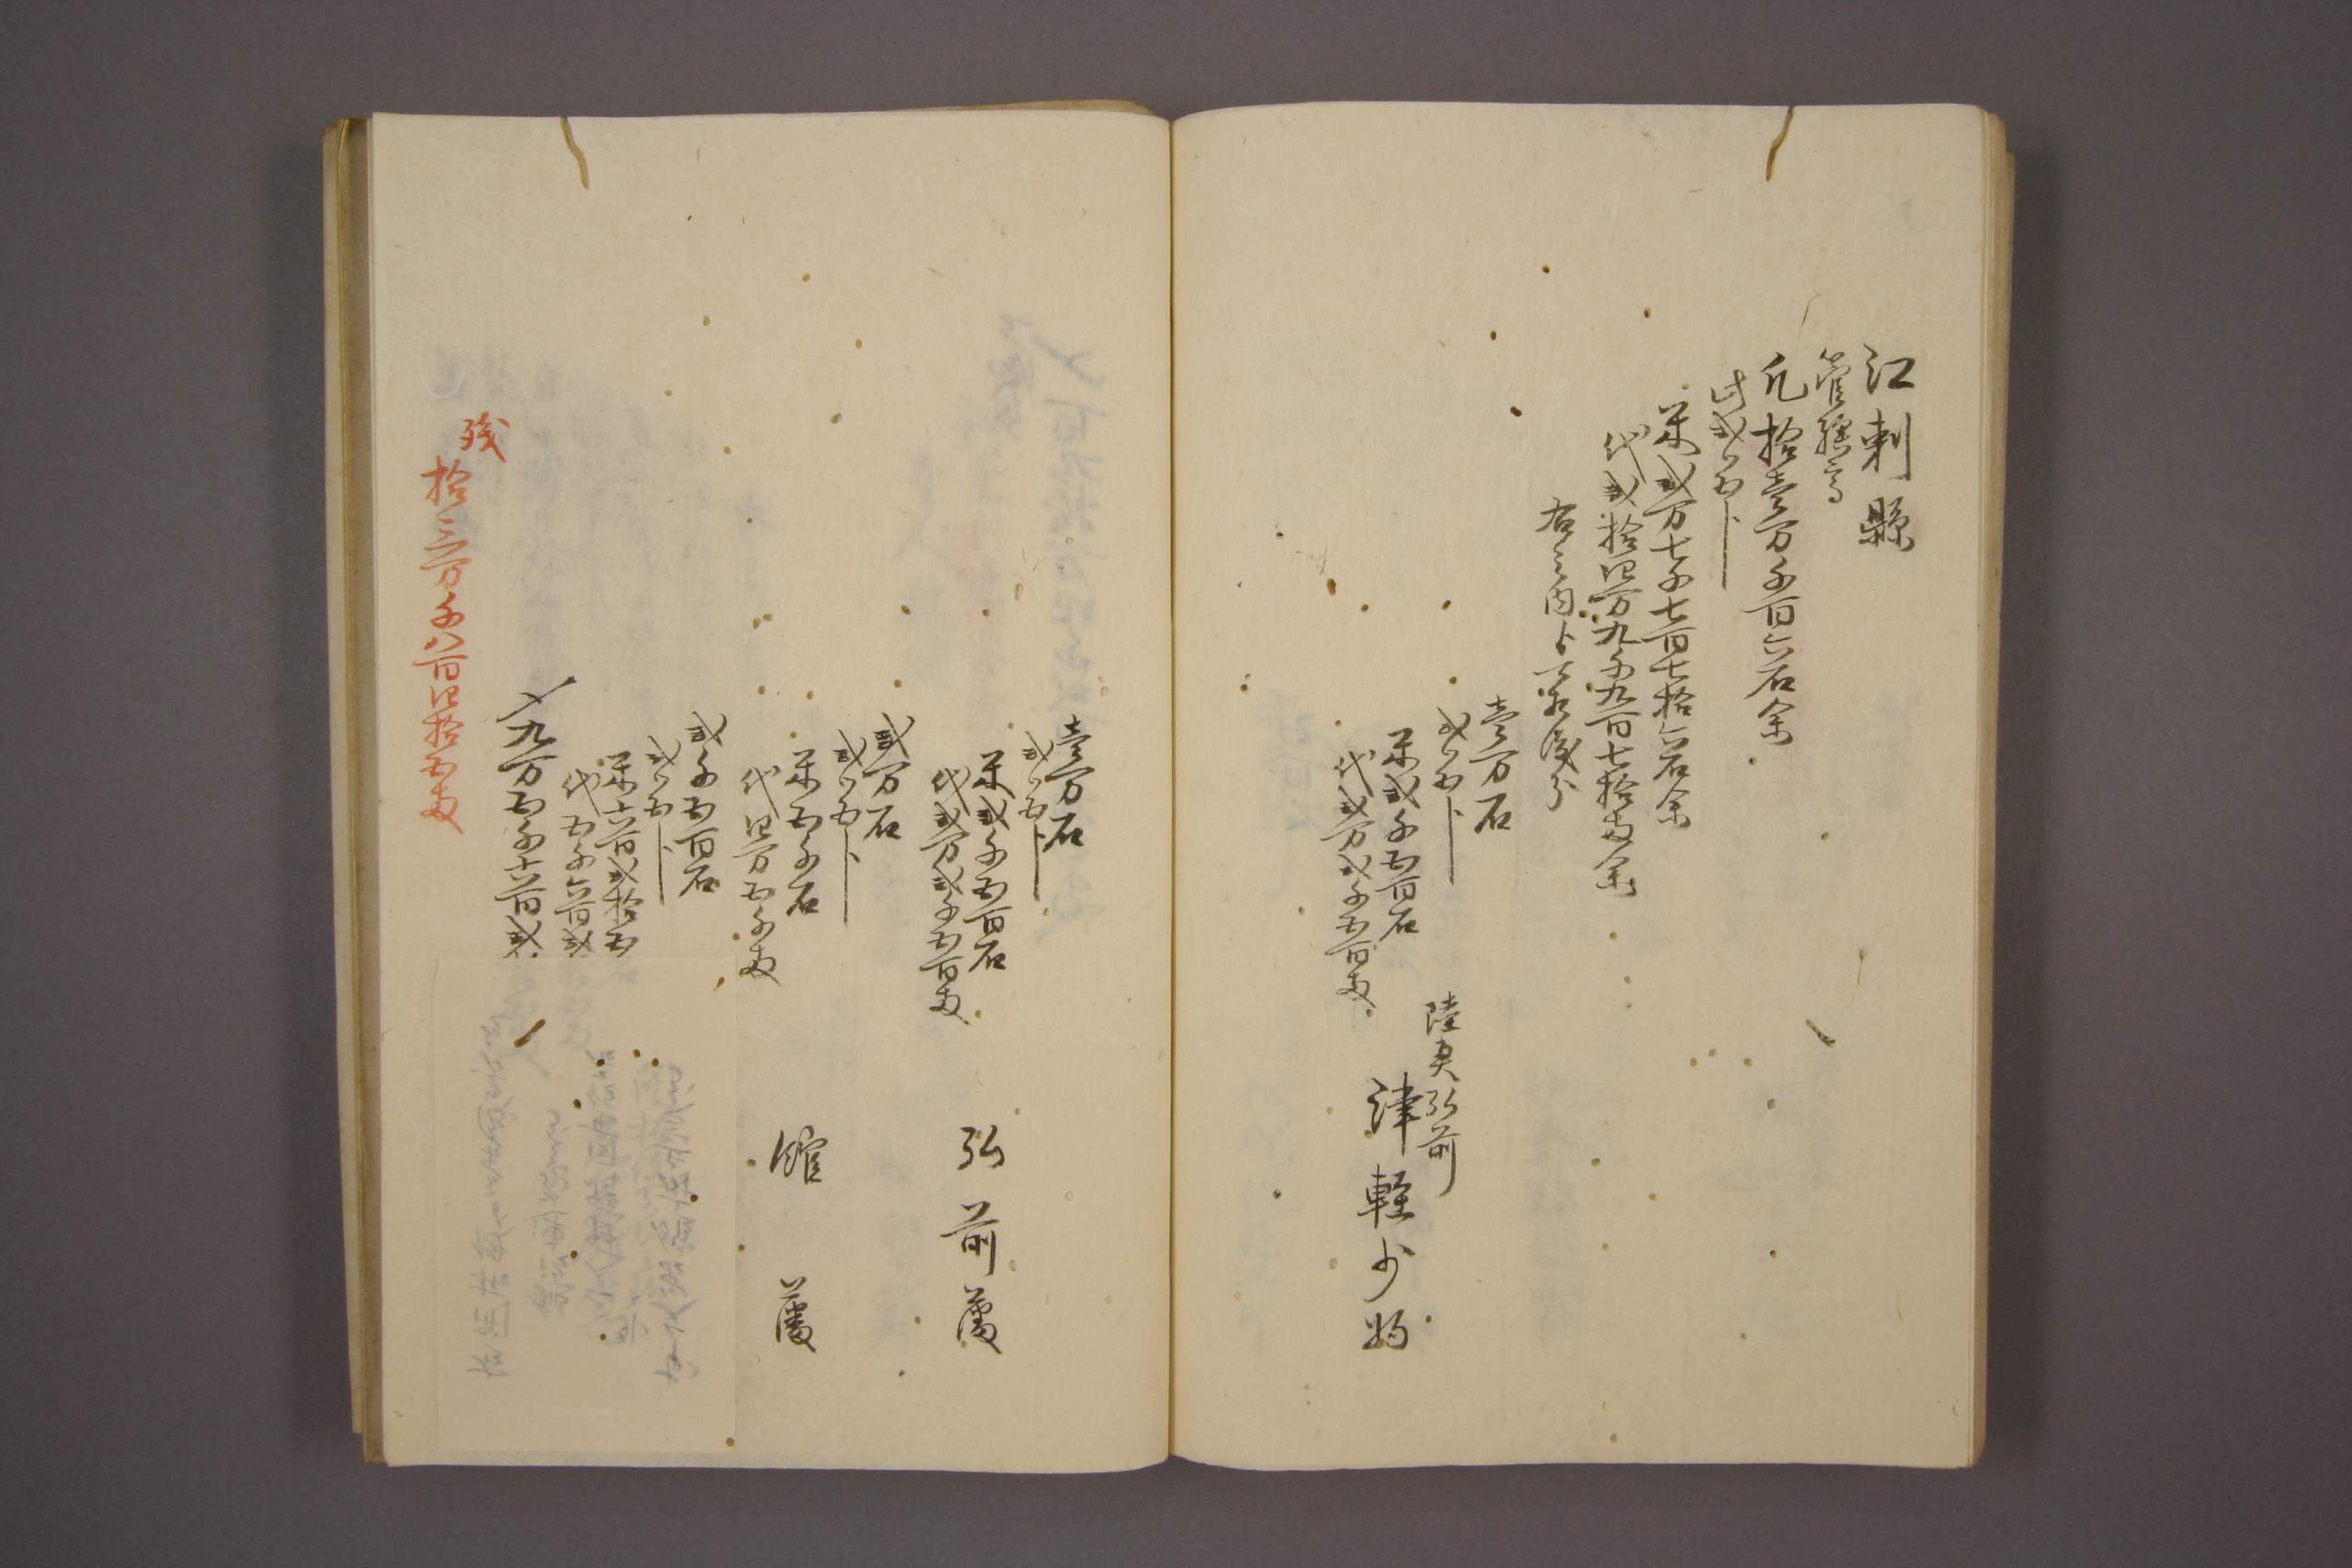 江刺縣
管轄高
凡拾壱万千百六石余
此弐ツ五卜
米弐万七千七百七拾六石余
代弐拾四万九千九百七拾両余
右之内ト下ケ渡分
壱万石
弐ツ五卜
米弐千五百石
代弐万弐千五百両
陸奥弘前
津軽少将
壱万石
弐ツ五卜
米弐千五百石
代弐万弐千五百両
弘前藩
弐万石
弐ツ五卜
米五千石
代四万五千両
館藩
弐千五百石
弐ツ五卜
米六百弐拾五
代五千六百弐
〆九万五千六百弐
残
拾三万千八百四拾五両